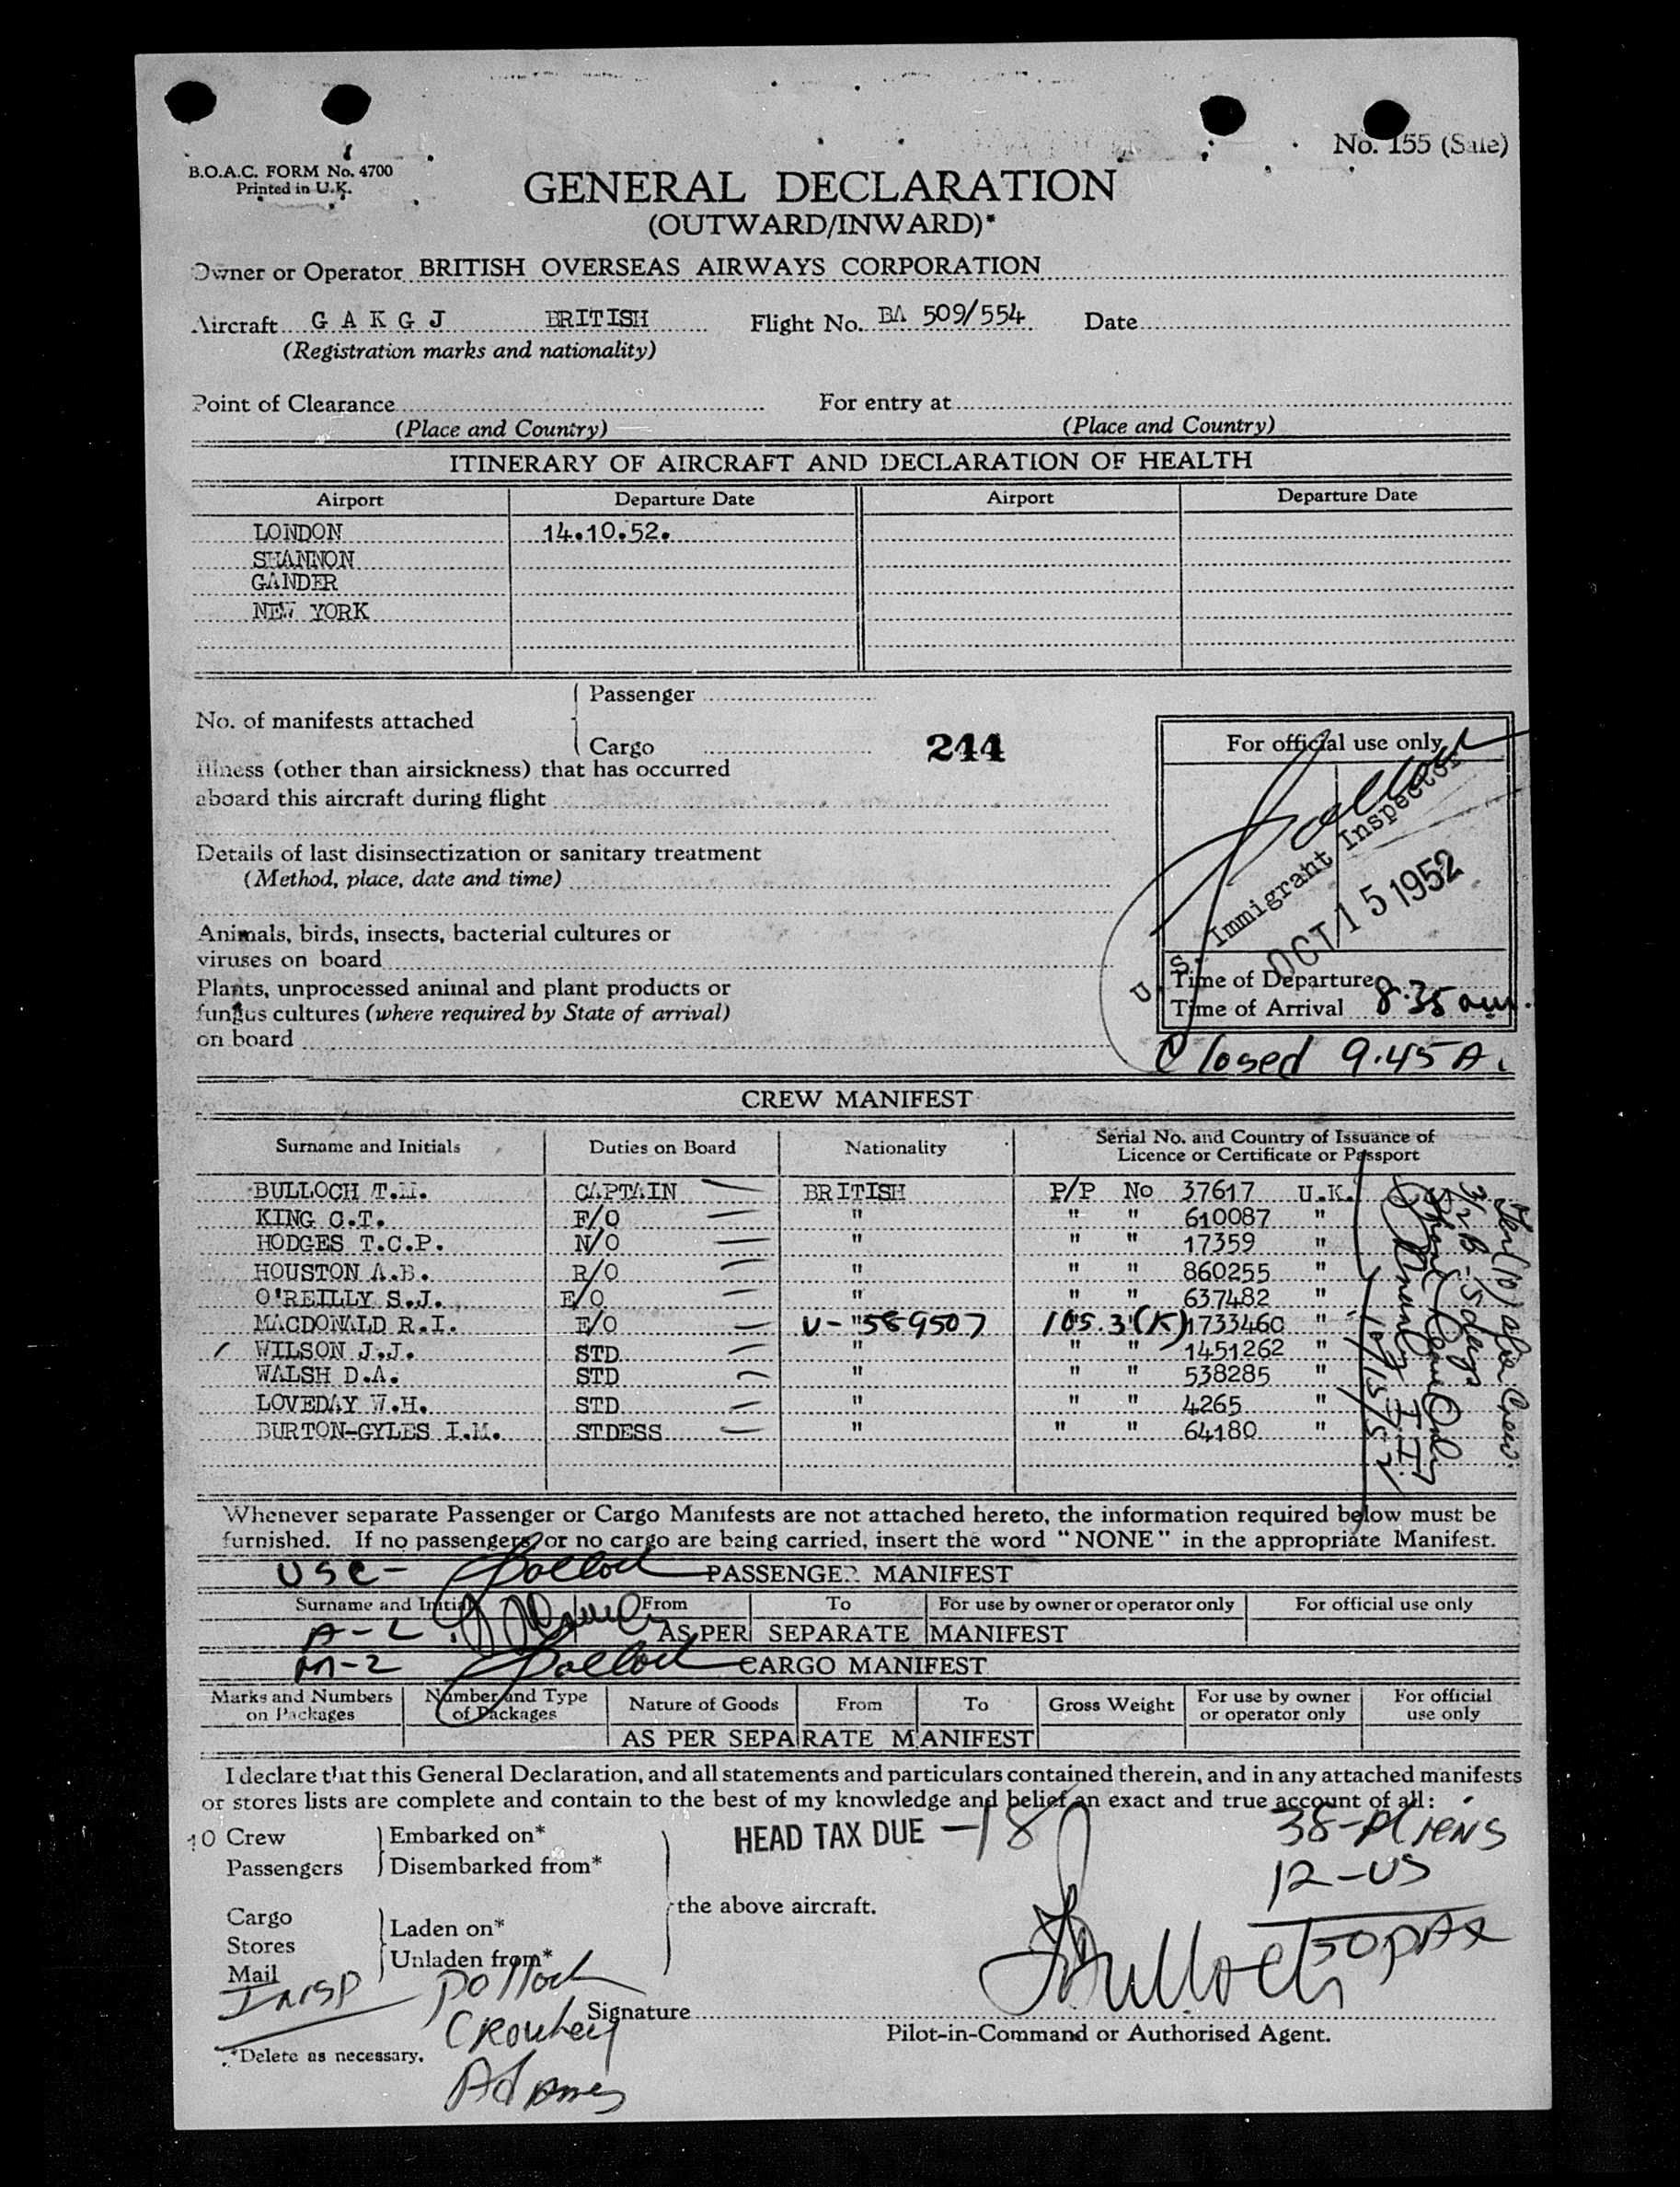 No. 155 (Sale)
B.O.A.C. FORM No. 4700
Printed in U.K.
GENERAL DECLARATION
(OUTWARD/INWARD)*
Owner or Operator BRITISH OVERSEAS AIRWAYS CORPORATION
Aircraft G A K G J BRITISH Flight No. BA 509/554 Date
(Registration marks and nationality)
Point of Clearance For entry at
(Place and Country) (Place and Country)
ITINERARY OF AIRCRAFT AND DECLARATION OF HEALTH
Airport Departure Date Airport Departure Date
LONDON 14.10.52.
SHANNON
GANDER
NEW YORK
Passenger
No. of manifests attached
Cargo 244
Illness (other than airsickness) that has occurred
aboard this aircraft during flight
Details of last disinsectization or sanitary treatment
(Method, place, date and time)
Animals, birds, insects, bacterial cultures or
viruses on board
Plants, unprocessed animal and plant products or
fungus cultures (where required by State of arrival)
on board
For official use only
U. S. Immigrant Inspector
OCT 15 1952
Time of Departure
Time of Arrival 8.35 am.
Closed 9.45 A.
CREW MANIFEST
Surname and Initials Duties on Board Nationality Serial No. and Country of Issuance of
Licence or Certificate or Passport
BULLOCH T.M. CAPTAIN BRITISH P/P No 37617 U.K.
KING C.T. F/O " " " 610087 "
HODGES T.C.P. N/O " " " 17359 "
HOUSTON A.B. R/O " " " 860255 "
O'REILLY S.J. E/O " " " 637482 "
MACDONALD R.I. E/O U-"589507 105.3"(K) 1733460 "
WILSON J.J. STD " " " 1451262 "
WALSH D.A. STD " " " 538285 "
LOVEDAY W.H. STD " " " 4265 "
BURTON-GYLES I.M. STDESS " " " 64180 "
Ten (10) alien Crew.
10/15/52
Whenever separate Passenger or Cargo Manifests are not attached hereto, the information required below must be
furnished. If no passengers or no cargo are being carried, insert the word "NONE" in the appropriate Manifest.
USC- Pollock PASSENGER MANIFEST
Surname and Initials From To For use by owner or operator only For official use only
A-2 AS PER SEPARATE MANIFEST
M-2 Pollock CARGO MANIFEST
Marks and Numbers on Packages Number and Type of Packages Nature of Goods From To Gross Weight For use by owner or operator only For official use only
AS PER SEPARATE MANIFEST
I declare that this General Declaration, and all statements and particulars contained therein, and in any attached manifests
or stores lists are complete and contain to the best of my knowledge and belief an exact and true account of all:
10 Crew Embarked on* HEAD TAX DUE -18 38-Aliens
Passengers Disembarked from* 12-US
the above aircraft.
50 pax
Cargo Laden on*
Stores
Unladen from*
Mail
INSP Pollock
Signature TBulloch
Crowley
Pilot-in-Command or Authorised Agent.
*Delete as necessary.
Adames